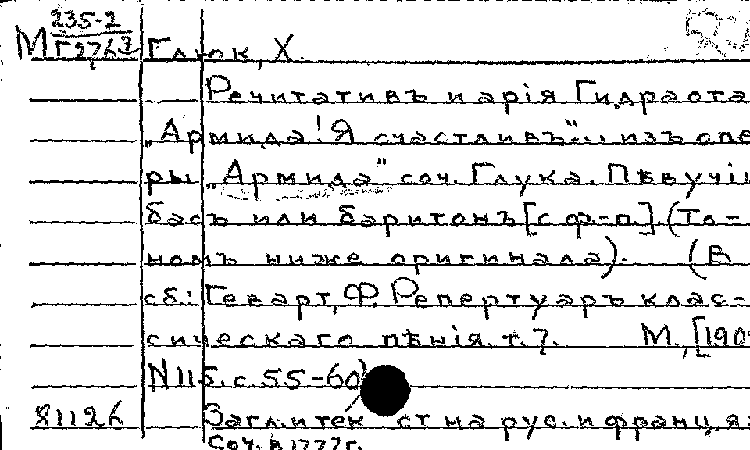 235-2
М Г2763 Глюк, Х.
Речитативъ и арія Гидраота
„Армида! Я счастливъ"... изъ опе
ры „Армида" соч. Глука. Пѣвучій
басъ или баритонъ [с ф-п.] (То-
номъ ниже оригинала). (В
сб.: Геварт, Ф. Репертуаръ клас-
сическаго пѣнія. т. 7. М., [190
N 115. с. 55-60)
81126 Загл. и текст на рус. и франц. яз
Соч. в 1777 г.